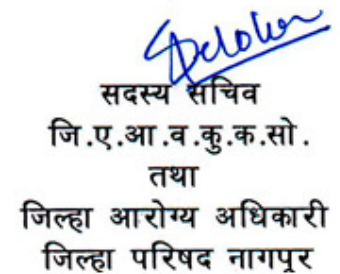 सदस्य सचिव
जि.ए.आ.व.कु.क.सो.
तथा
जिल्हा आरोग्य अधिकारी
जिल्हा परिषद नागपूर